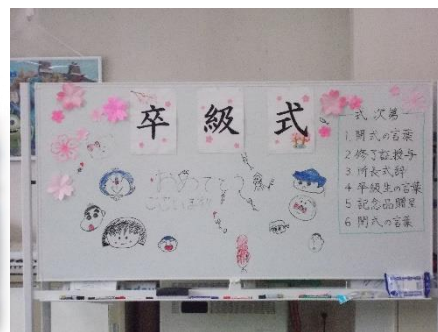 卒級式
おめでとう
ございます!!
式次第
1 開式の言葉
2 修了証授与
3 所長式辞
4 卒級生の言葉
5 記念品贈呈
6 閉式の言葉